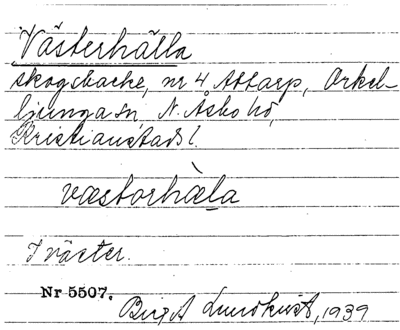 Västerhälla
skogsbacke, nr 4 Attarp, Örkel-
ljunga sn, N. Åsbo hd,
Kristianstads l.
væstorhæ̀la
I väster.
Nr 5507.
Birgit Lundkvist, 1939